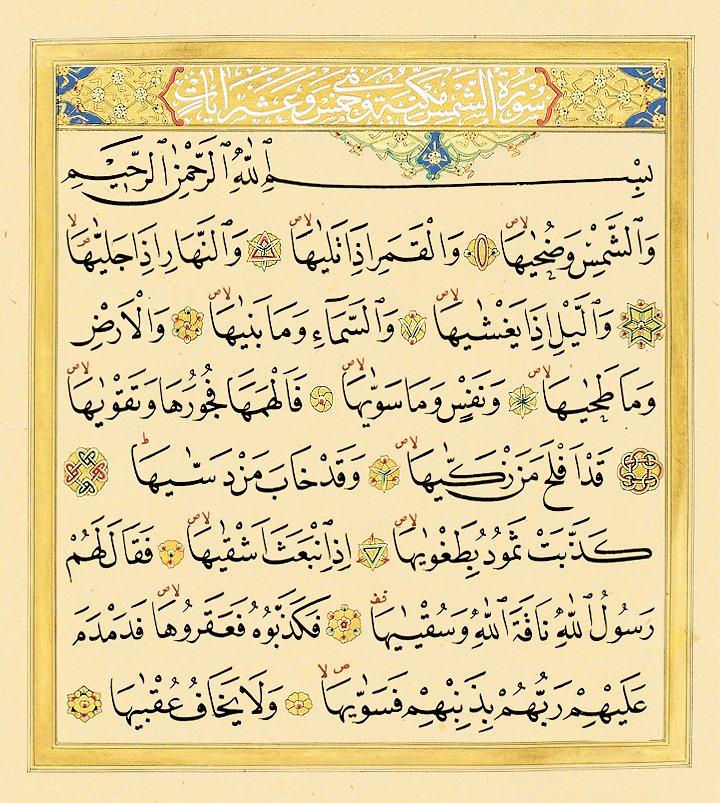 سورة الشمس مكية وهي خمس وعشر ايات
بِسْمِ اللّٰهِ الرَّحْمٰنِ الرَّحِيمِ
وَالشَّمْسِ وَضُحٰيهَا ۙ وَالْقَمَرِ اِذَا تَلٰيهَا ۙ وَالنَّهَارِ اِذَا جَلّٰيهَا ۙ
وَالَّيْلِ اِذَا يَغْشٰيهَا ۙ وَالسَّمَٓاءِ وَمَا بَنٰيهَا ۙ وَالْاَرْضِ
وَمَا طَحٰيهَا ۙ وَنَفْسٍ وَمَا سَوّٰيهَا ۙ فَاَلْهَمَهَا فُجُورَهَا وَتَقْوٰيهَا ۙ
قَدْ اَفْلَحَ مَنْ زَكّٰيهَا ۙ وَقَدْ خَابَ مَنْ دَسّٰيهَا ۜ
كَذَّبَتْ ثَمُودُ بِطَغْوٰيهَا ۙ اِذِ انْبَعَثَ اَشْقٰيهَا ۙ فَقَالَ لَهُمْ
رَسُولُ اللّٰهِ نَاقَةَ اللّٰهِ وَسُقْيٰيهَا قف فَكَذَّبُوهُ فَعَقَرُوهَا ۙ فَدَمْدَمَ
عَلَيْهِمْ رَبُّهُمْ بِذَنْبِهِمْ فَسَوّٰيهَا ۙ وَلَا يَخَافُ عُقْبٰيهَا